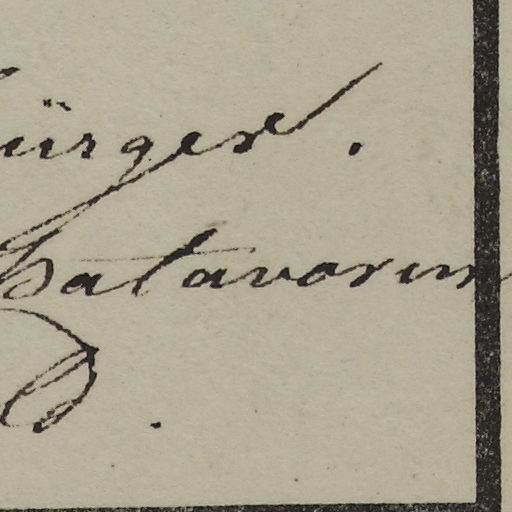 ürger.
batavorum